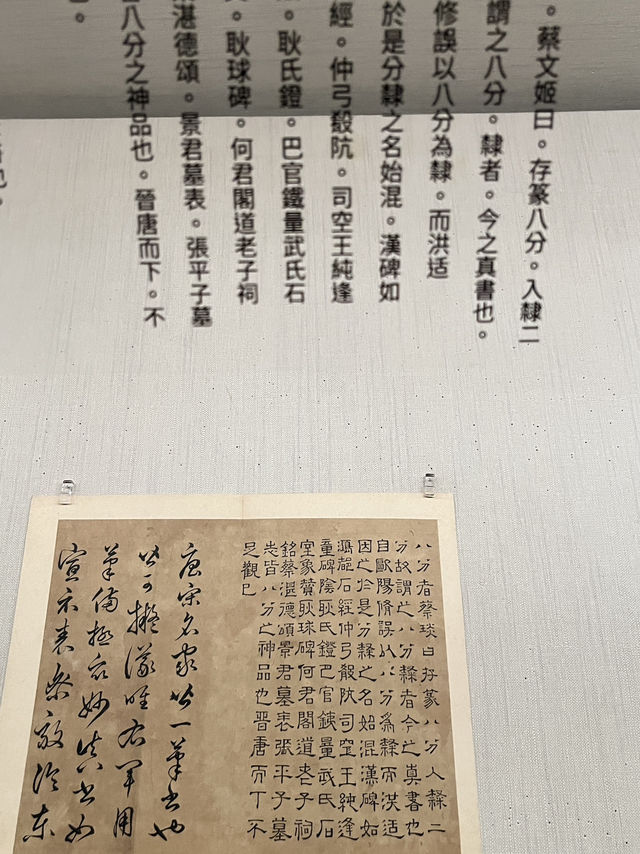 。蔡文姬曰。存篆八分。入隸二
謂之八分。隸者。今之真書也。
修誤以八分為隸。而洪适
於是分隸之名始混。漢碑如
經。仲弓殽阬。司空王純逢
。耿氏鐙。巴官鐵量武氏石
。耿球碑。何君閣道老子祠
湛德頌。景君墓表。張平子墓
八分之神品也。晉唐而下。不
。
也。
八分者蔡琰曰存篆八分入隸二
分故謂之八分隸者今之真書也
自歐陽脩誤以八分為隸而洪适
因之於是分隸之名始混漢碑如
鴻都石經仲弓殽阬司空王純逢
童碑陰耿氏鐙巴官鐵量武氏石
室象贊耿球碑何君閣道老子祠
銘蔡湛德頌景君墓表張平子墓
志皆八分之神品也晉唐而下不
足觀已
唐宋名家一筆書也
可擬議唯右軍用
筆備極衆妙書如
宣示表樂毅論東